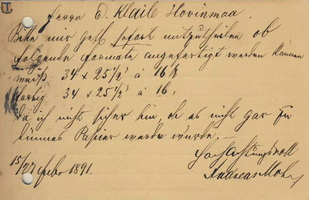 Herrn E. Klaile Hovinmaa
Bitte mir gefl. sofort mitzutheilen ob
folgende Formate angefertigt werden können
weiß 34 x 25 1/2 à 16
farbig 34 x 25 1/2 à 16
da ich nicht sicher bin, ob es nicht gar zu
dünnes Papier werden würde.
Hochachtungsvoll
15/27 1891. Andreas